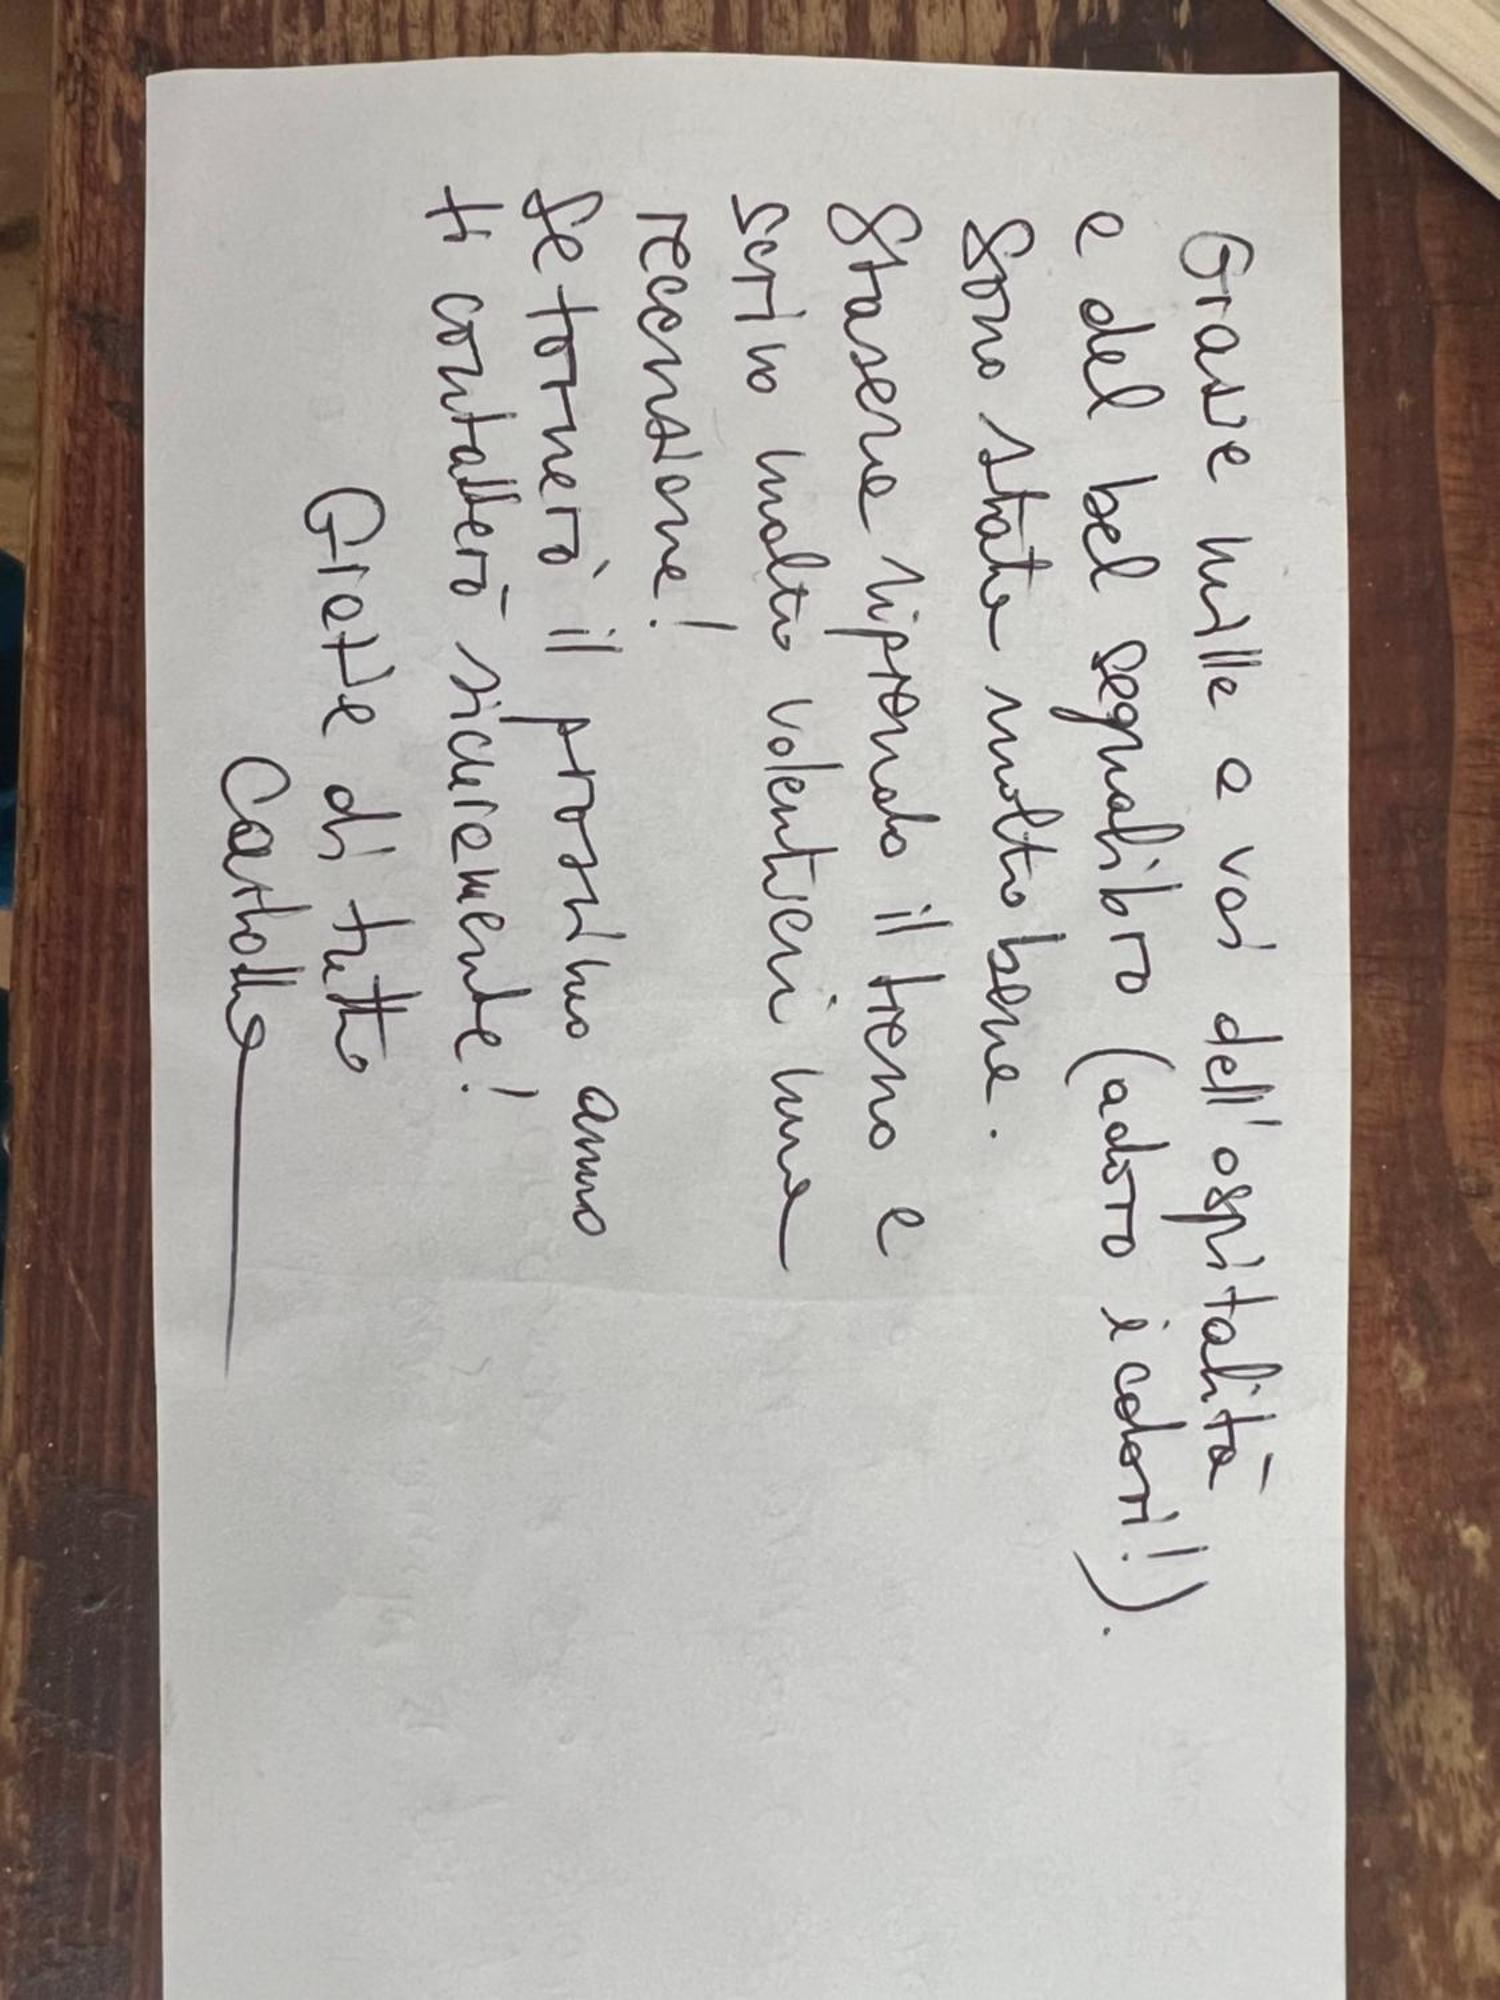 Grazie mille a voi dell'ospitalità
e del bel segnalibro (adoro i colori!).
Sono stata molto bene.
Stasera riprendo il treno e
scrivo molto volentieri una
recensione!
Se tornerò il prossimo anno
ti contatterò sicuramente!
Grazie di tutto